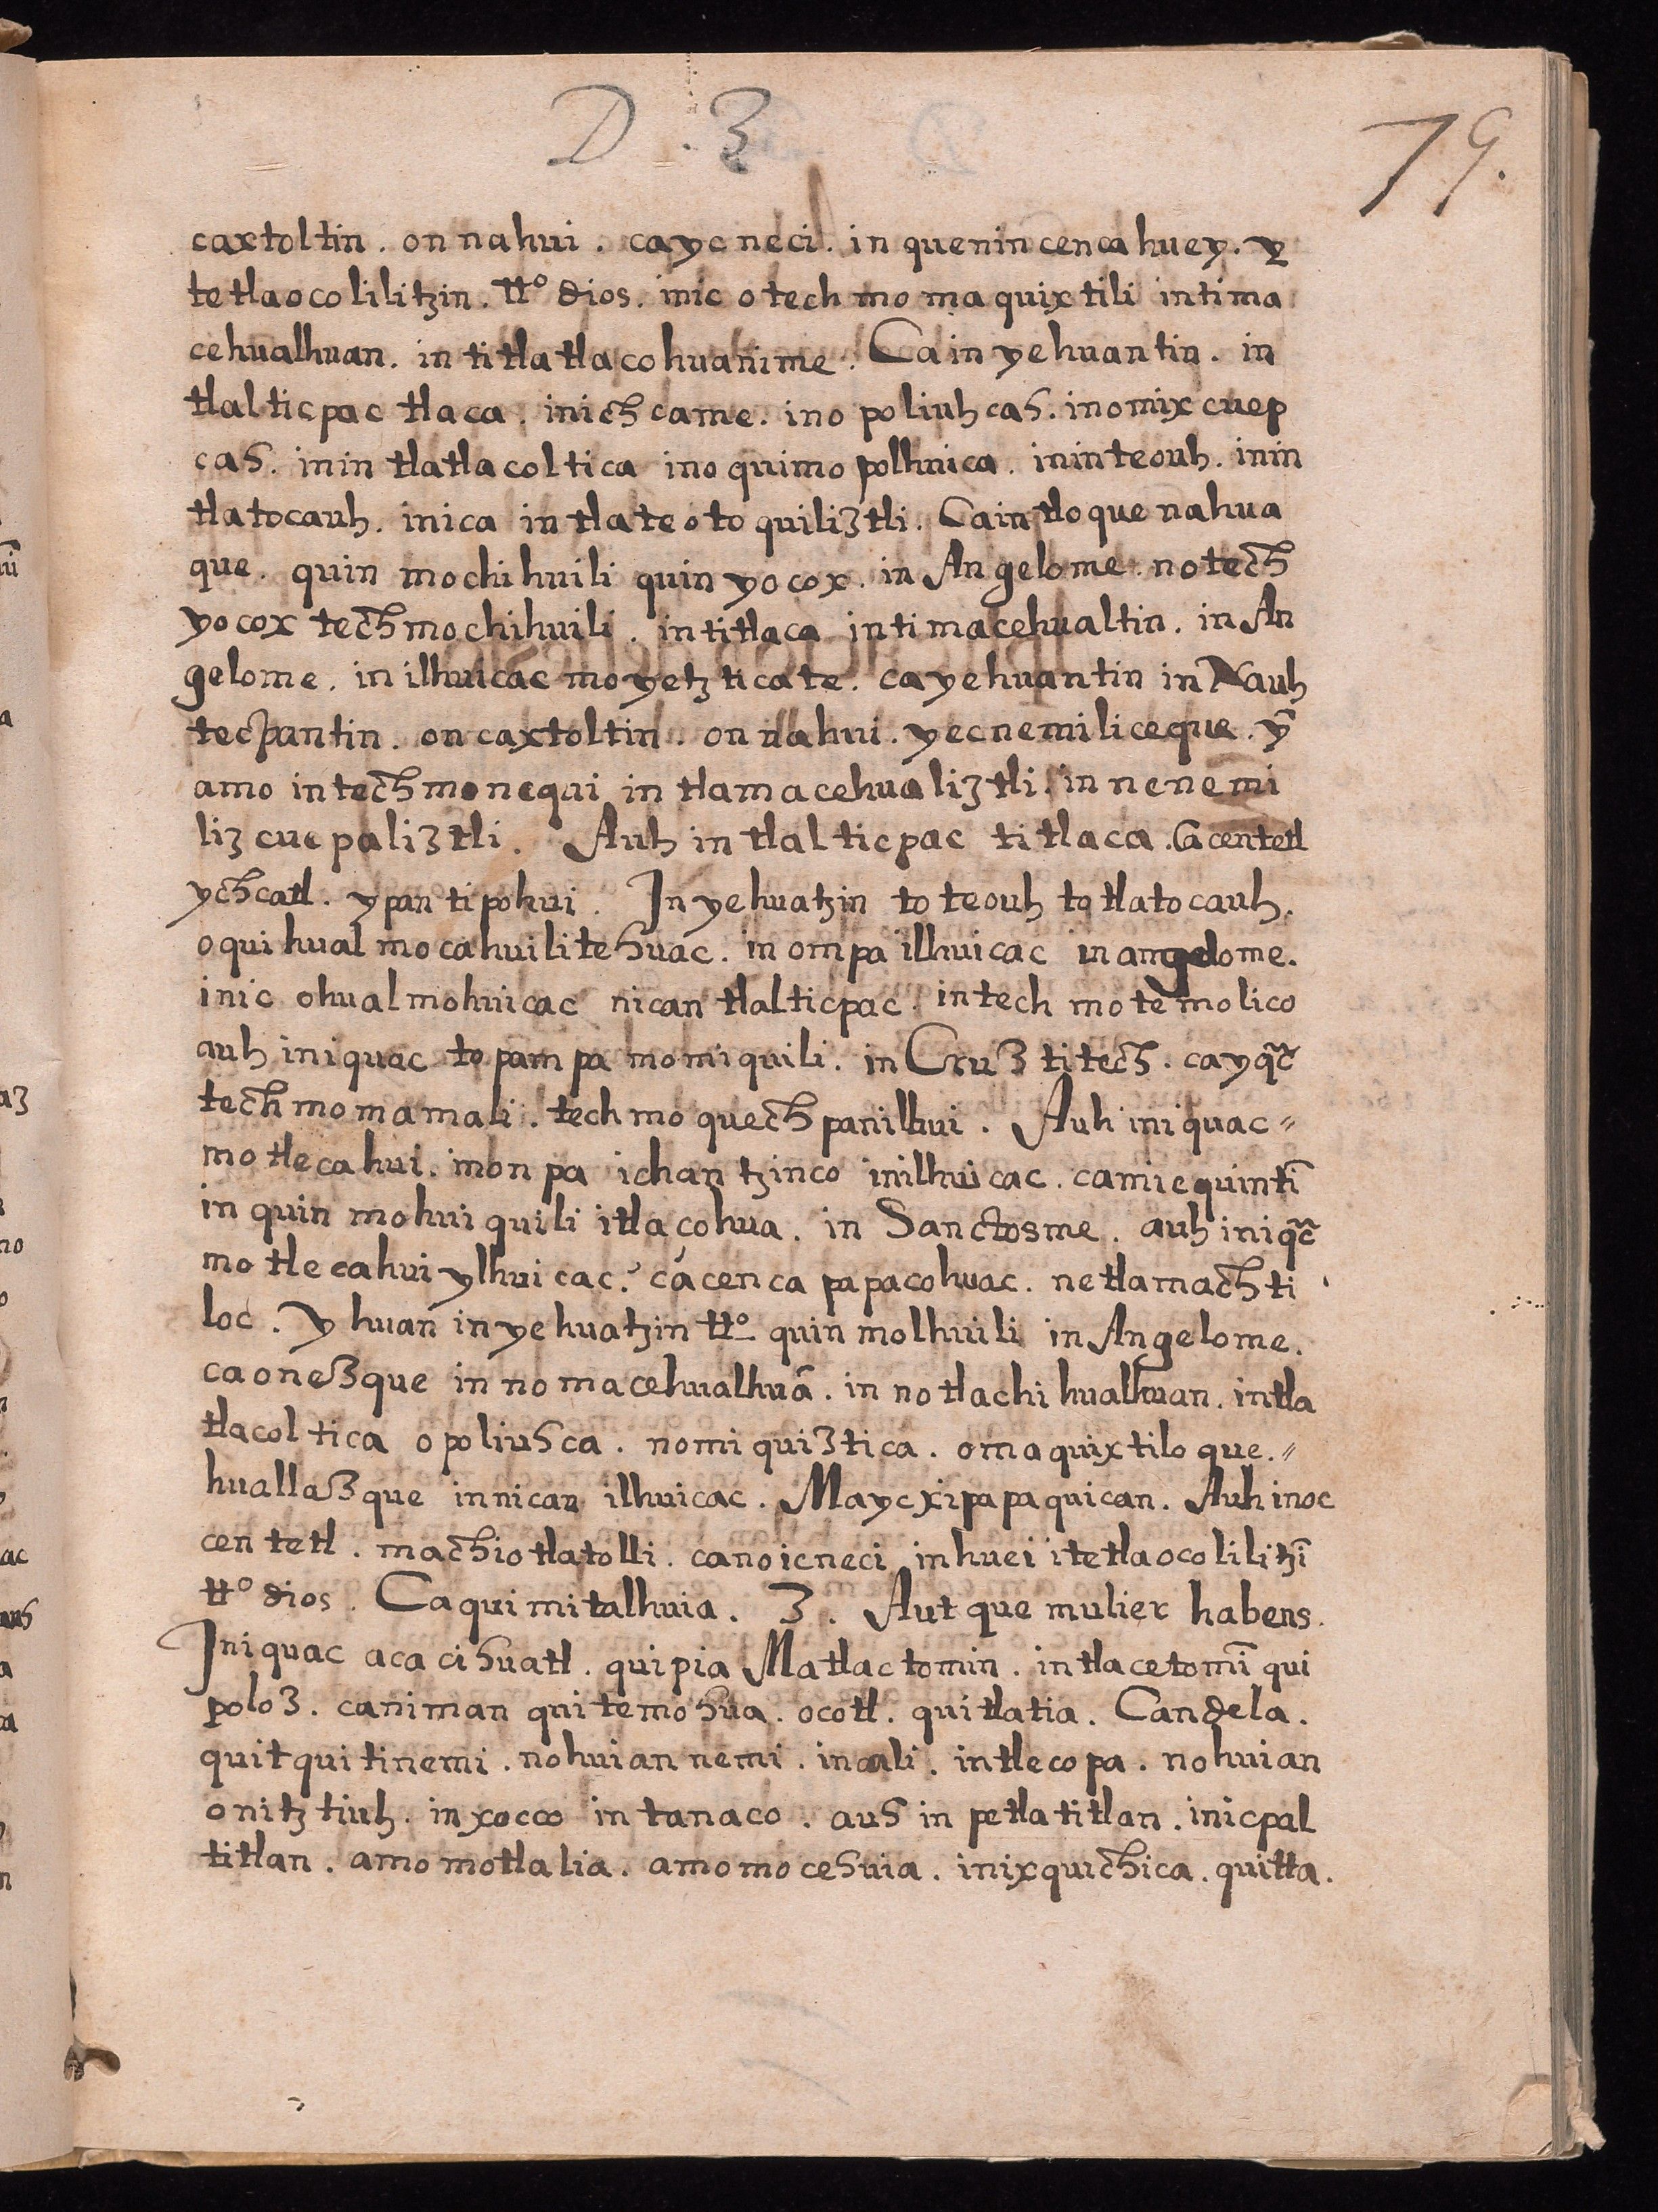 D . 3
79.
caxtoltin . on nahui . ca yc neci . in quenin cenca huey . y
tetlaocolilitzin . tt.º dios . inic otech mo maquixtili in tima
cehualhuan . in titlatlacohuanime . Ca in yehuantin . in
tlalticpac tlaca . in ichcame . in o poliuhcah . in omixcuep
cah . inin tlatlacoltica in oquimo polhuica . ininteouh . inin
tlatocauh . inica in tlateotoquiliztli . Ca in tloque nahua
que . quin mochihuili quin yocox . in Angelome . no tech
yocox techmochihuili . in titlaca in timacehualtin . in An
gelome . in ilhuicac moyetzticate . ca yehuantin in Nauh
tecpantin . on caxtoltin . on nahui . yecnemiliceque . yn̄
amo intech monequi in tlamacehualiztli . in nenemi
lizcuepaliztli . Auh in tlalticpac titlaca . Ca centetl
ychcatl . ypan tipohui . In yehuatzin toteouh totlatocauh .
oquihualmocahuilitehuac . in ompa ilhuicac in angelome .
inic ohualmohuicac nican tlalticpac . in techmotemolico
auh iniquac topampa momiquili . in Cruz titech . ca yq̄c
techmomamali . techmoquechpanilhui . Auh iniquac =
motlecahui . in onpa ichantzinco in ilhuicac . ca miequintī
in quin mohuiquili itlaçohua . in Sanctosme . auh iniq̄c
motlecahui ylhuicac . ca cenca papacohuac . netlamachti
loc . Yhuan in yehuatzin tt.º quin molhuili in Angelome .
ca onezque in nomacehualhuā . in notlachihualhuan . in tla
tlacoltica opoliuhca . nomiquiztica . omaquixtiloque . =
huallazque in nican ilhuicac . Ma yc xipapaquican . Auh in oc
centetl . machiotlatolli . ca no ic neci in huei itetlaocolilitzī
tt.º dios . Ca quimitalhuia . 3 . Aut que mulier habens .
Iniquac aca cihuatl . quipia Matlactomin . intla cetomī qui
poloz . ca niman quitemohua . ocotl . quitlatia . Candela .
quitquitinemi . nohuian nemi . in cali . in tlecopa . nohuian
onitztiuh . in xocco in tanaco . auh in petlatitlan . in icpal
titlan . amo motlalia . amo mocehuia . in ixquichica . quitta .